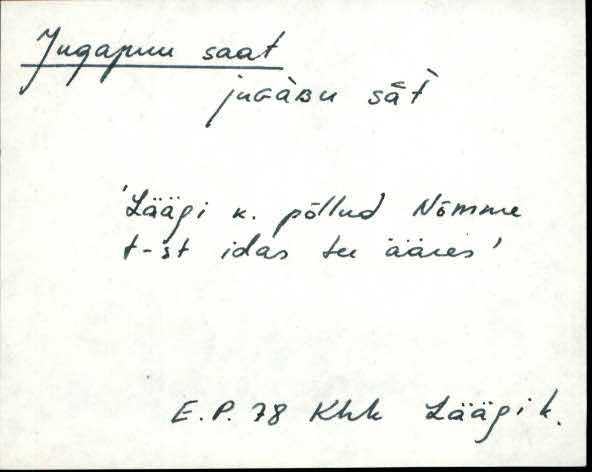 Jugapuu saat
jugàʙu sā̆t̀
'Läägi k. põllud Nõmme
t-st idas tee ääres'
E.P. 78 Khk Läägi k.